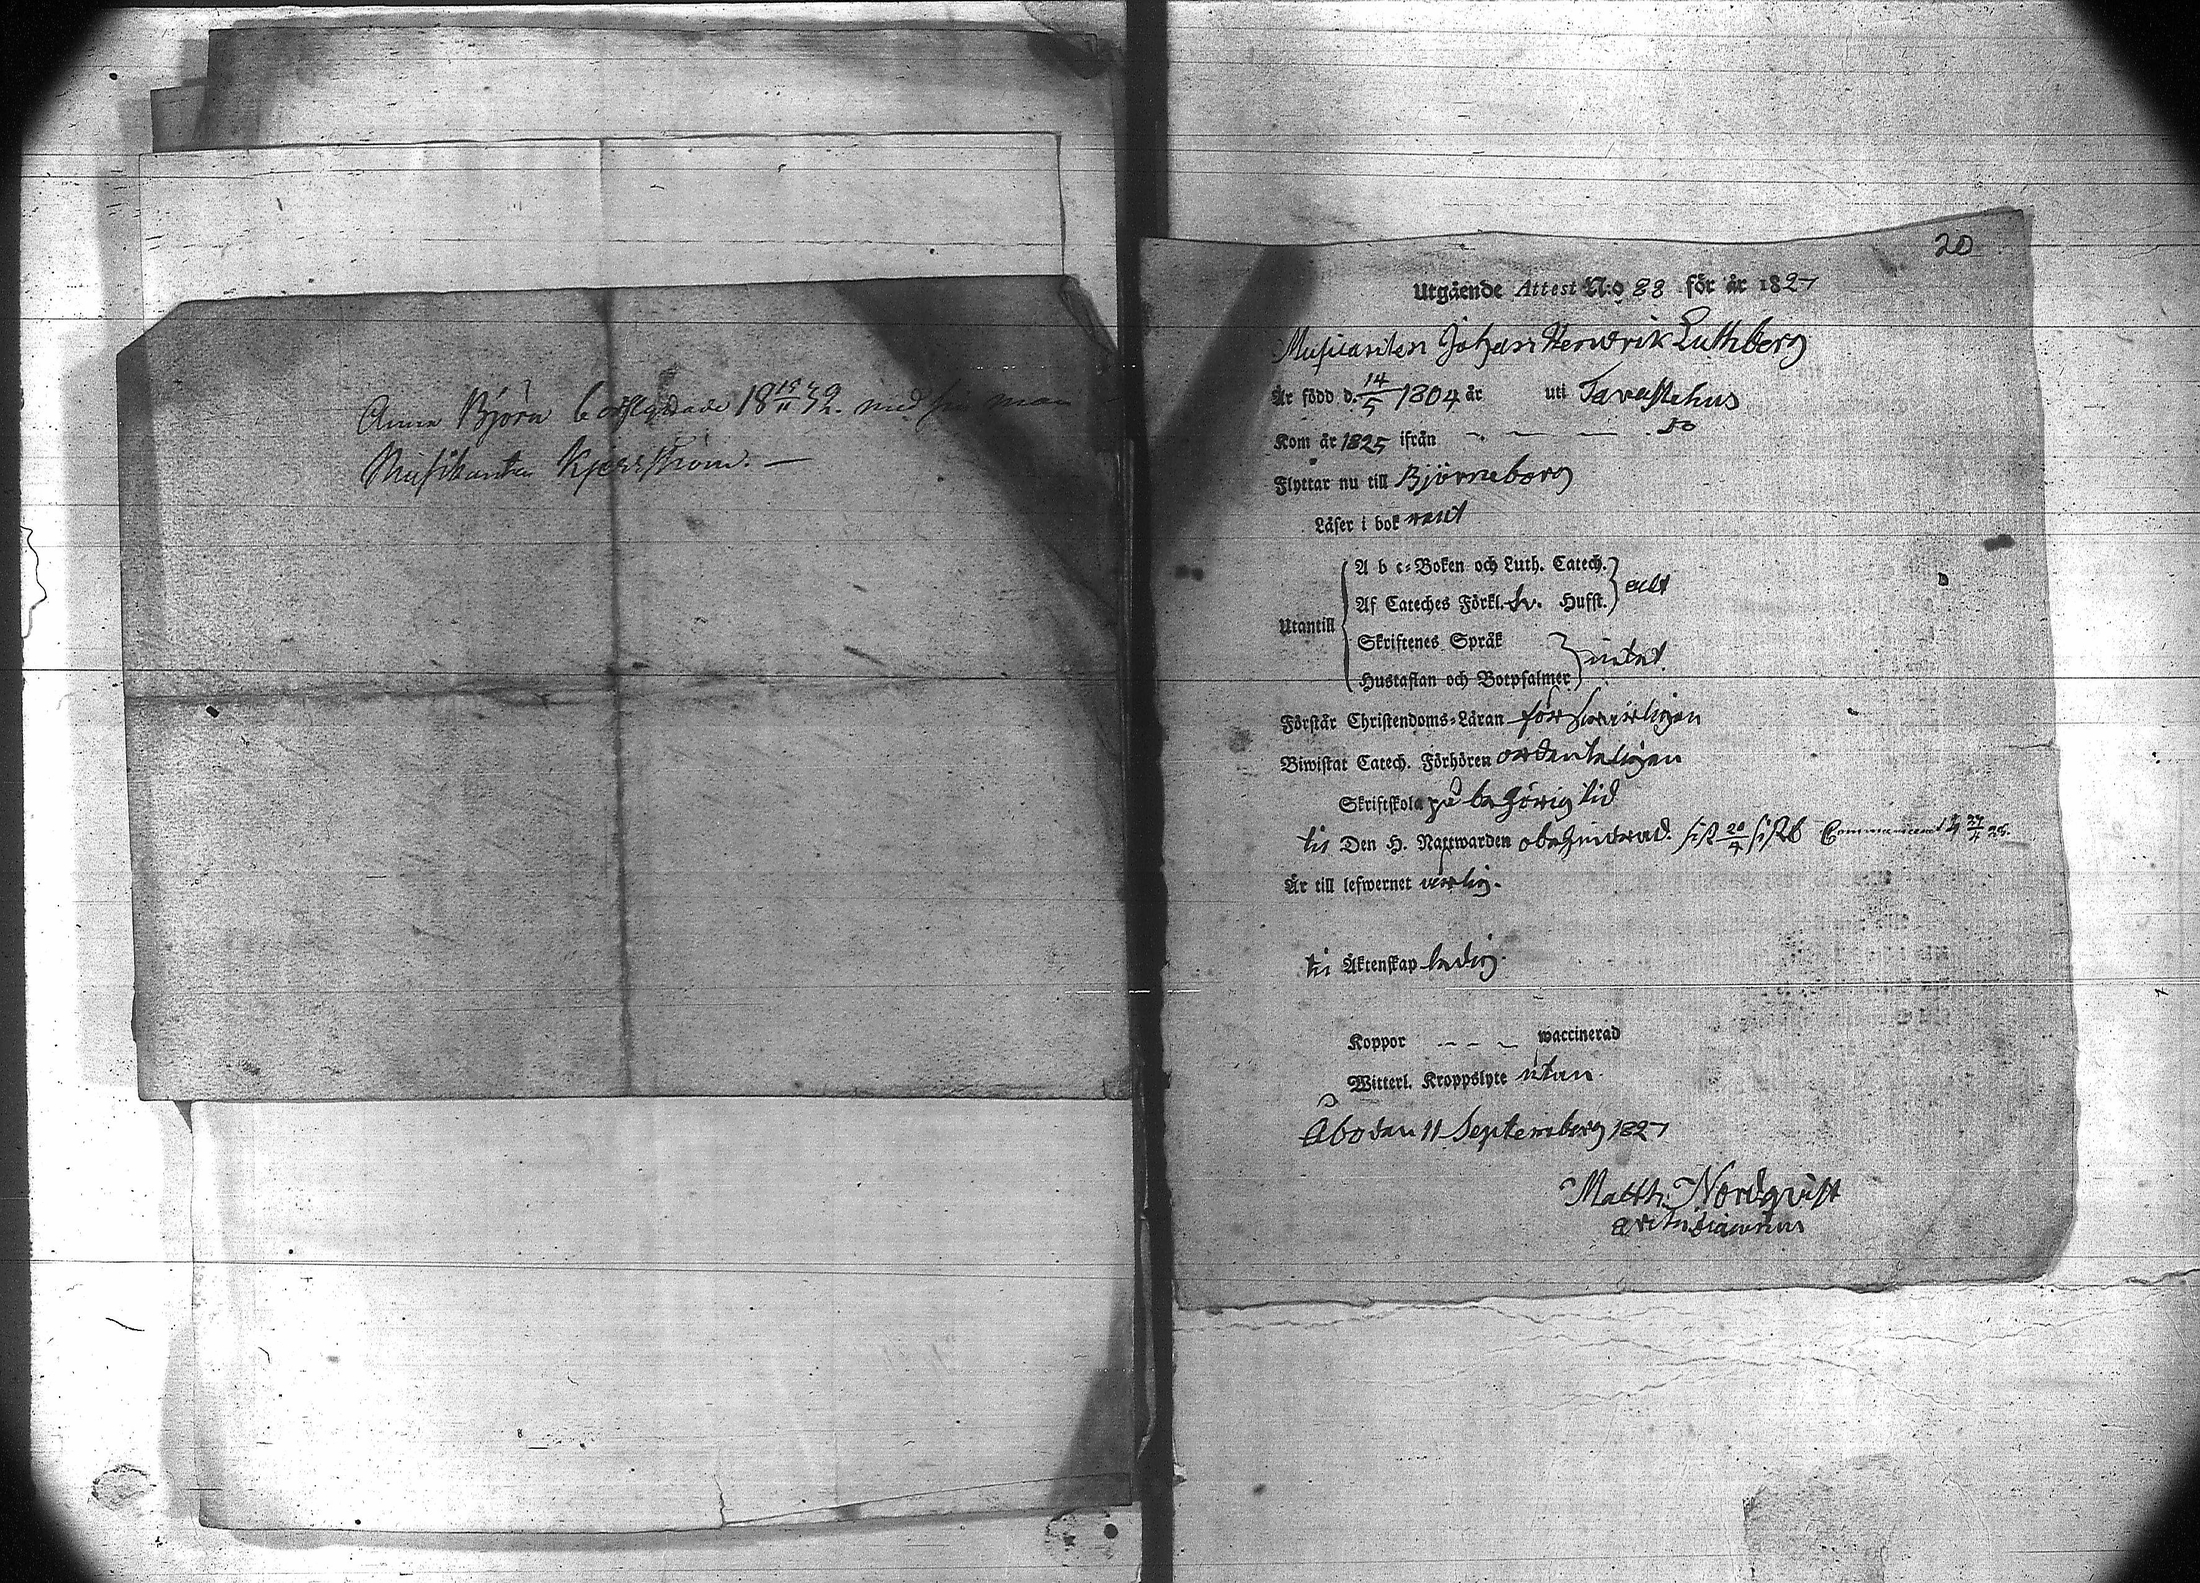 Anna Björn bortflyttade 18 19/11 32. med sin man
Musikanten Kjerrström. —
20
Utgående Attest N:o 88 för år 1827
Musicanten Johan Hendrik Luthberg
Är född d. 14/5 1804 år uti Tavastehus
Kom år 1825 ifrån — — — Do
Flyttar nu till Björneborg
Läser i bok rent
Utantill
A b c-Boken och Luth. Catech.
Af Cateches Förkl. Sv. Hufst. allt
Skriftenes Språk
Hustaflan och Botpsalmer intet.
Förstår Christendoms-Läran försvarligen
Biwistat Catech. Förhören ordenteligen
Skriftskola på behörig tid
til Den H. Nattwarden obehindrad. sist 20/4
Är till lefwernet ärlig.
til Äktenskap ledig.
Koppor — — — waccinerad
Witterl. Kroppslyte utan.
Åbo den 11 September 1827
Matth. Nordqvist